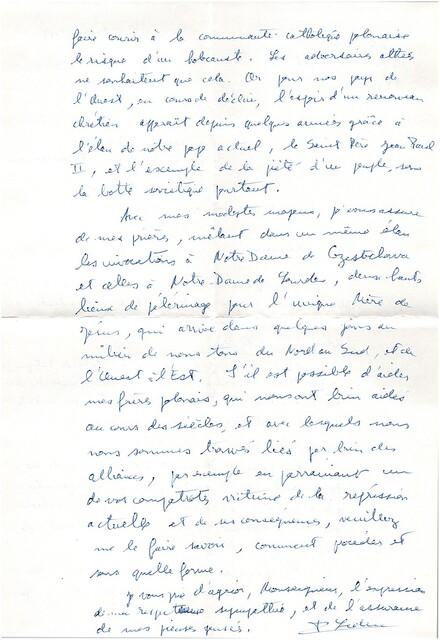 faire courir à la communauté catholique polonaise
le risque d'un holocauste. Les adversaires athées
ne souhaitent que cela. Or pour nos pays de
l'Ouest, en cours de déclin, l'espoir d'un renouveau
chrétien apparaît depuis quelques années grâce à
l'élan de notre pape actuel, le Saint Père Jean Paul
II, et l'exemple de la piété d'un peuple, sous
la botte soviétique pourtant.
Avec mes modestes moyens, je vous assure
de mes prières, mêlant dans un même élan
les invocations à Notre Dame de Czestochova
et celles à Notre-Dame de Lourdes, deux hauts
lieux de pèlerinage pour l'unique Mère de
Jésus, qui arrive dans quelques jours au
milieu de nous tous du Nord au Sud, et de
l'Ouest à l'Est. S'il est possible d'aider
mes frères polonais, qui nous ont bien aidés
au cours des siècles, et avec lesquels nous
nous sommes trouvés liés par bien des
alliances, par exemple en parrainant un
de vos compatriotes victime de la répression
actuelle et de ses conséquences, veuillez
me le faire savoir, comment procéder et
sous quelle forme.
Je vous prie d'agréer, Monseigneur, l'expression
de ma respectueuse sympathie, et de l'assurance
de mes pieuses pensées.